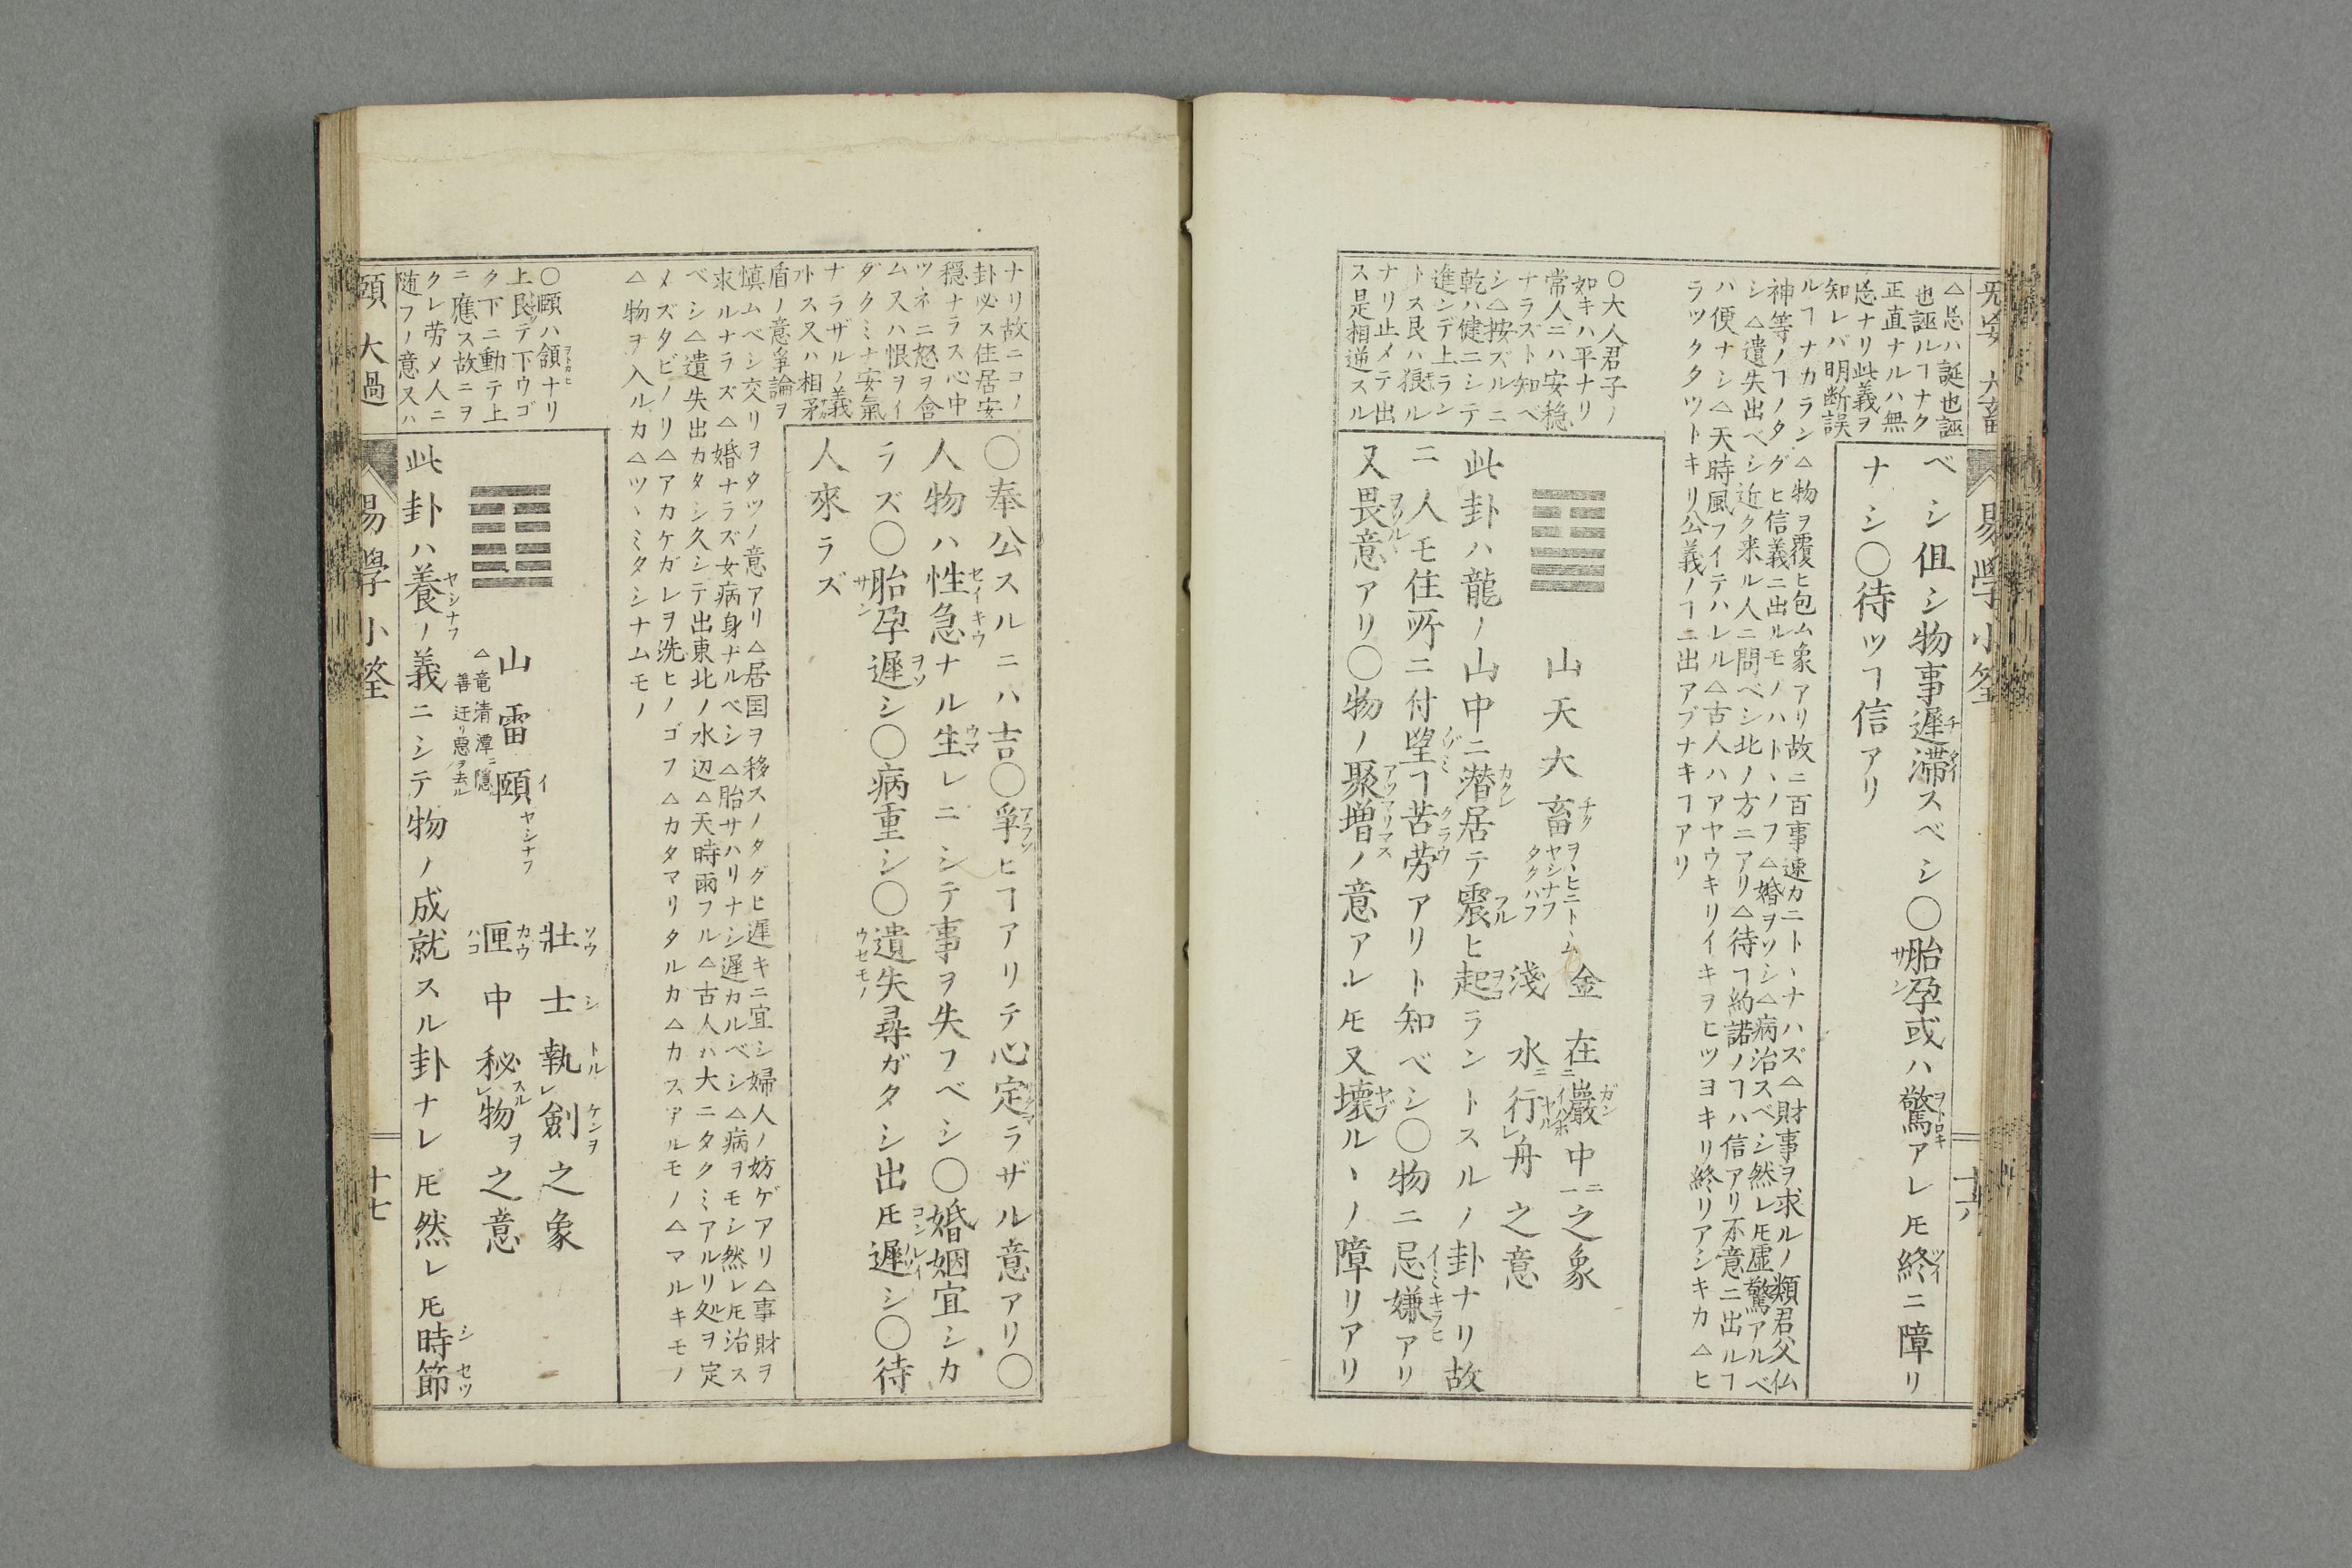 无妄 大畜
易學小筌
十六
△忌ハ誕也誣
也誣ルヿナク
正直ナルハ無
忌ナリ此義ヲ
知レバ明断誤
ルヿナカラン
ベシ但シ物事遅滞スベシ〇胎孕或ハ驚アレ𪜈終ニ障リ
ナシ〇待ツヿ信アリ
△物ヲ覆ヒ包ム象アリ故ニ百事速カニトヽナハズ△財事ヲ求ルノ類君父仏
神等ノヿノタグヒ信義ニ出ルモノハトヽノフ△婚ヲツシ△病治スベシ然レ𪜈虚驚アルベ
シ△遺失出ベシ近ク来ル人ニ問ベシ北ノ方ニアリ△待ヿ約諾ノヿハ信アリ不意ニ出ルヿ
ハ便ナシ△天時風フイテハレル△古人ハアヤウキリイキヲヒツヨキリ終リアシキカ△ヒ
ラツクタツトキリ公義ノヿニ出アブナキヿアリ
〇大人君子ノ
如キハ平ナリ
常人ニハ安穏
ナラズト知ベ
シ△按ズルニ
乾ハ健ニシテ
進ンデ上ラン
トス艮ハ狠ル
ナリ止メテ出
ス是相逆スル
山天大畜 チク ヲヽヒニトヽム ヤシナフ タクハフ
金在巖中之象
淺水行舟之意
此卦ハ龍ノ山中ニ潜居テ震ヒ起ラントスルノ卦ナリ故
ニ人モ住所ニ付望ヿ苦労アリト知ベシ〇物ニ忌嫌アリ
又畏意アリ〇物ノ聚増ノ意アレ𪜈又壊ルヽノ障リアリ
ナリ故ニコノ
卦必ス住居安
穏ナラス心中
ツネニ怒ヲ含
ム又ハ恨ヲイ
ダクミナ安氣
ナラザルノ義
トス又ハ相矛
盾ノ意爭論ヲ
慎ムベシ
〇奉公スルニハ吉〇孚ヒヿアリテ心定ラザル意アリ〇
人物ハ性急ナル生レニシテ事ヲ失フベシ〇婚姻宜シカ
ラズ〇胎孕遅シ〇病重シ〇遺失尋ガタシ出𪜈遅シ〇待
人來ラズ
交リヲタツノ意アリ△居国ヲ移スノタグヒ遅キニ宜シ婦人ノ妨ゲアリ△事財ヲ
求ルナラズ△婚ナラズ女病身ナルベシ△胎サハリナシ遅カルベシ△病ヲモシ然レ𪜈治ス
ベシ△遺失出カタシ久シテ出東北ノ水辺△天時雨フル△古人ハ大ニタクミアルリ処ヲ定
メズタビノリ△アカケガレヲ洗ヒノゴフ△カタマリタルカ△カスアルモノ△マルキモノ
△物ヲ入ルカ△ツヽミタシナムモノ
〇頤ハ頷ナリ
上艮テ下ウゴ
ク下ニ動テ上
ニ應ス故ニヲ
クレ労メ人ニ
随フノ意スハ
山雷頤 イ ヤシナフ
△竜清潭ニ隠ル
善迁リ悪ヲ去ル
壮士執劍之象
匣中秘物之意
此卦ハ養ノ義ニシテ物ノ成就スル卦ナレ𪜈然レ𪜈時節
頤 大過
易學小筌
十七